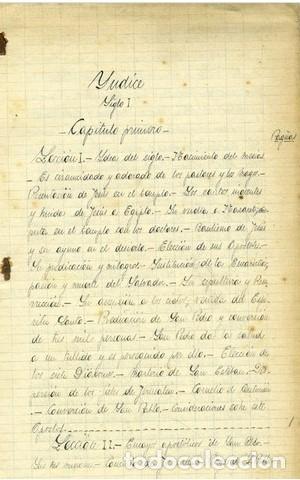 Yndice
Siglo I
Capitulo primero.- Paginas
Lección I.- Ydea del siglo.- Nacimiento del mesias.
Es circuncidado y adorado de los pastores y los magos.
Presentación de Jesús en el templo.- Los santos inocentes
y huida de Jesús a Egipto.- Su vuelta a Nazaret;
en el templo con los doctores.- Bautismo de Jesús
y su ayuno en el desierto.- Elección de sus Apostoles.-
Su predicación y milagros.- Institución de la Eucaristia,
pasión y muerte del Salvador.- Su sepultura y Resu-
rrección.- Su ascensión a los cielos, venida del Espi-
ritu Santo.- Predicación de San Pedro y conversión
de tres mil personas.- San Pedro da la salud
a un tullido y es perseguido por ello.- Elección de
los siete Diáconos.- Martirio de San Esteban.- Dis-
persión de los fieles de Jerusalen.- Cornelio el Centurión
.- Conversión de San Pablo.- Consideraciones sobre este
Apostol. 1
Lección II.- apostólicos de San
Sus
todocoleccion
todocoleccion.net